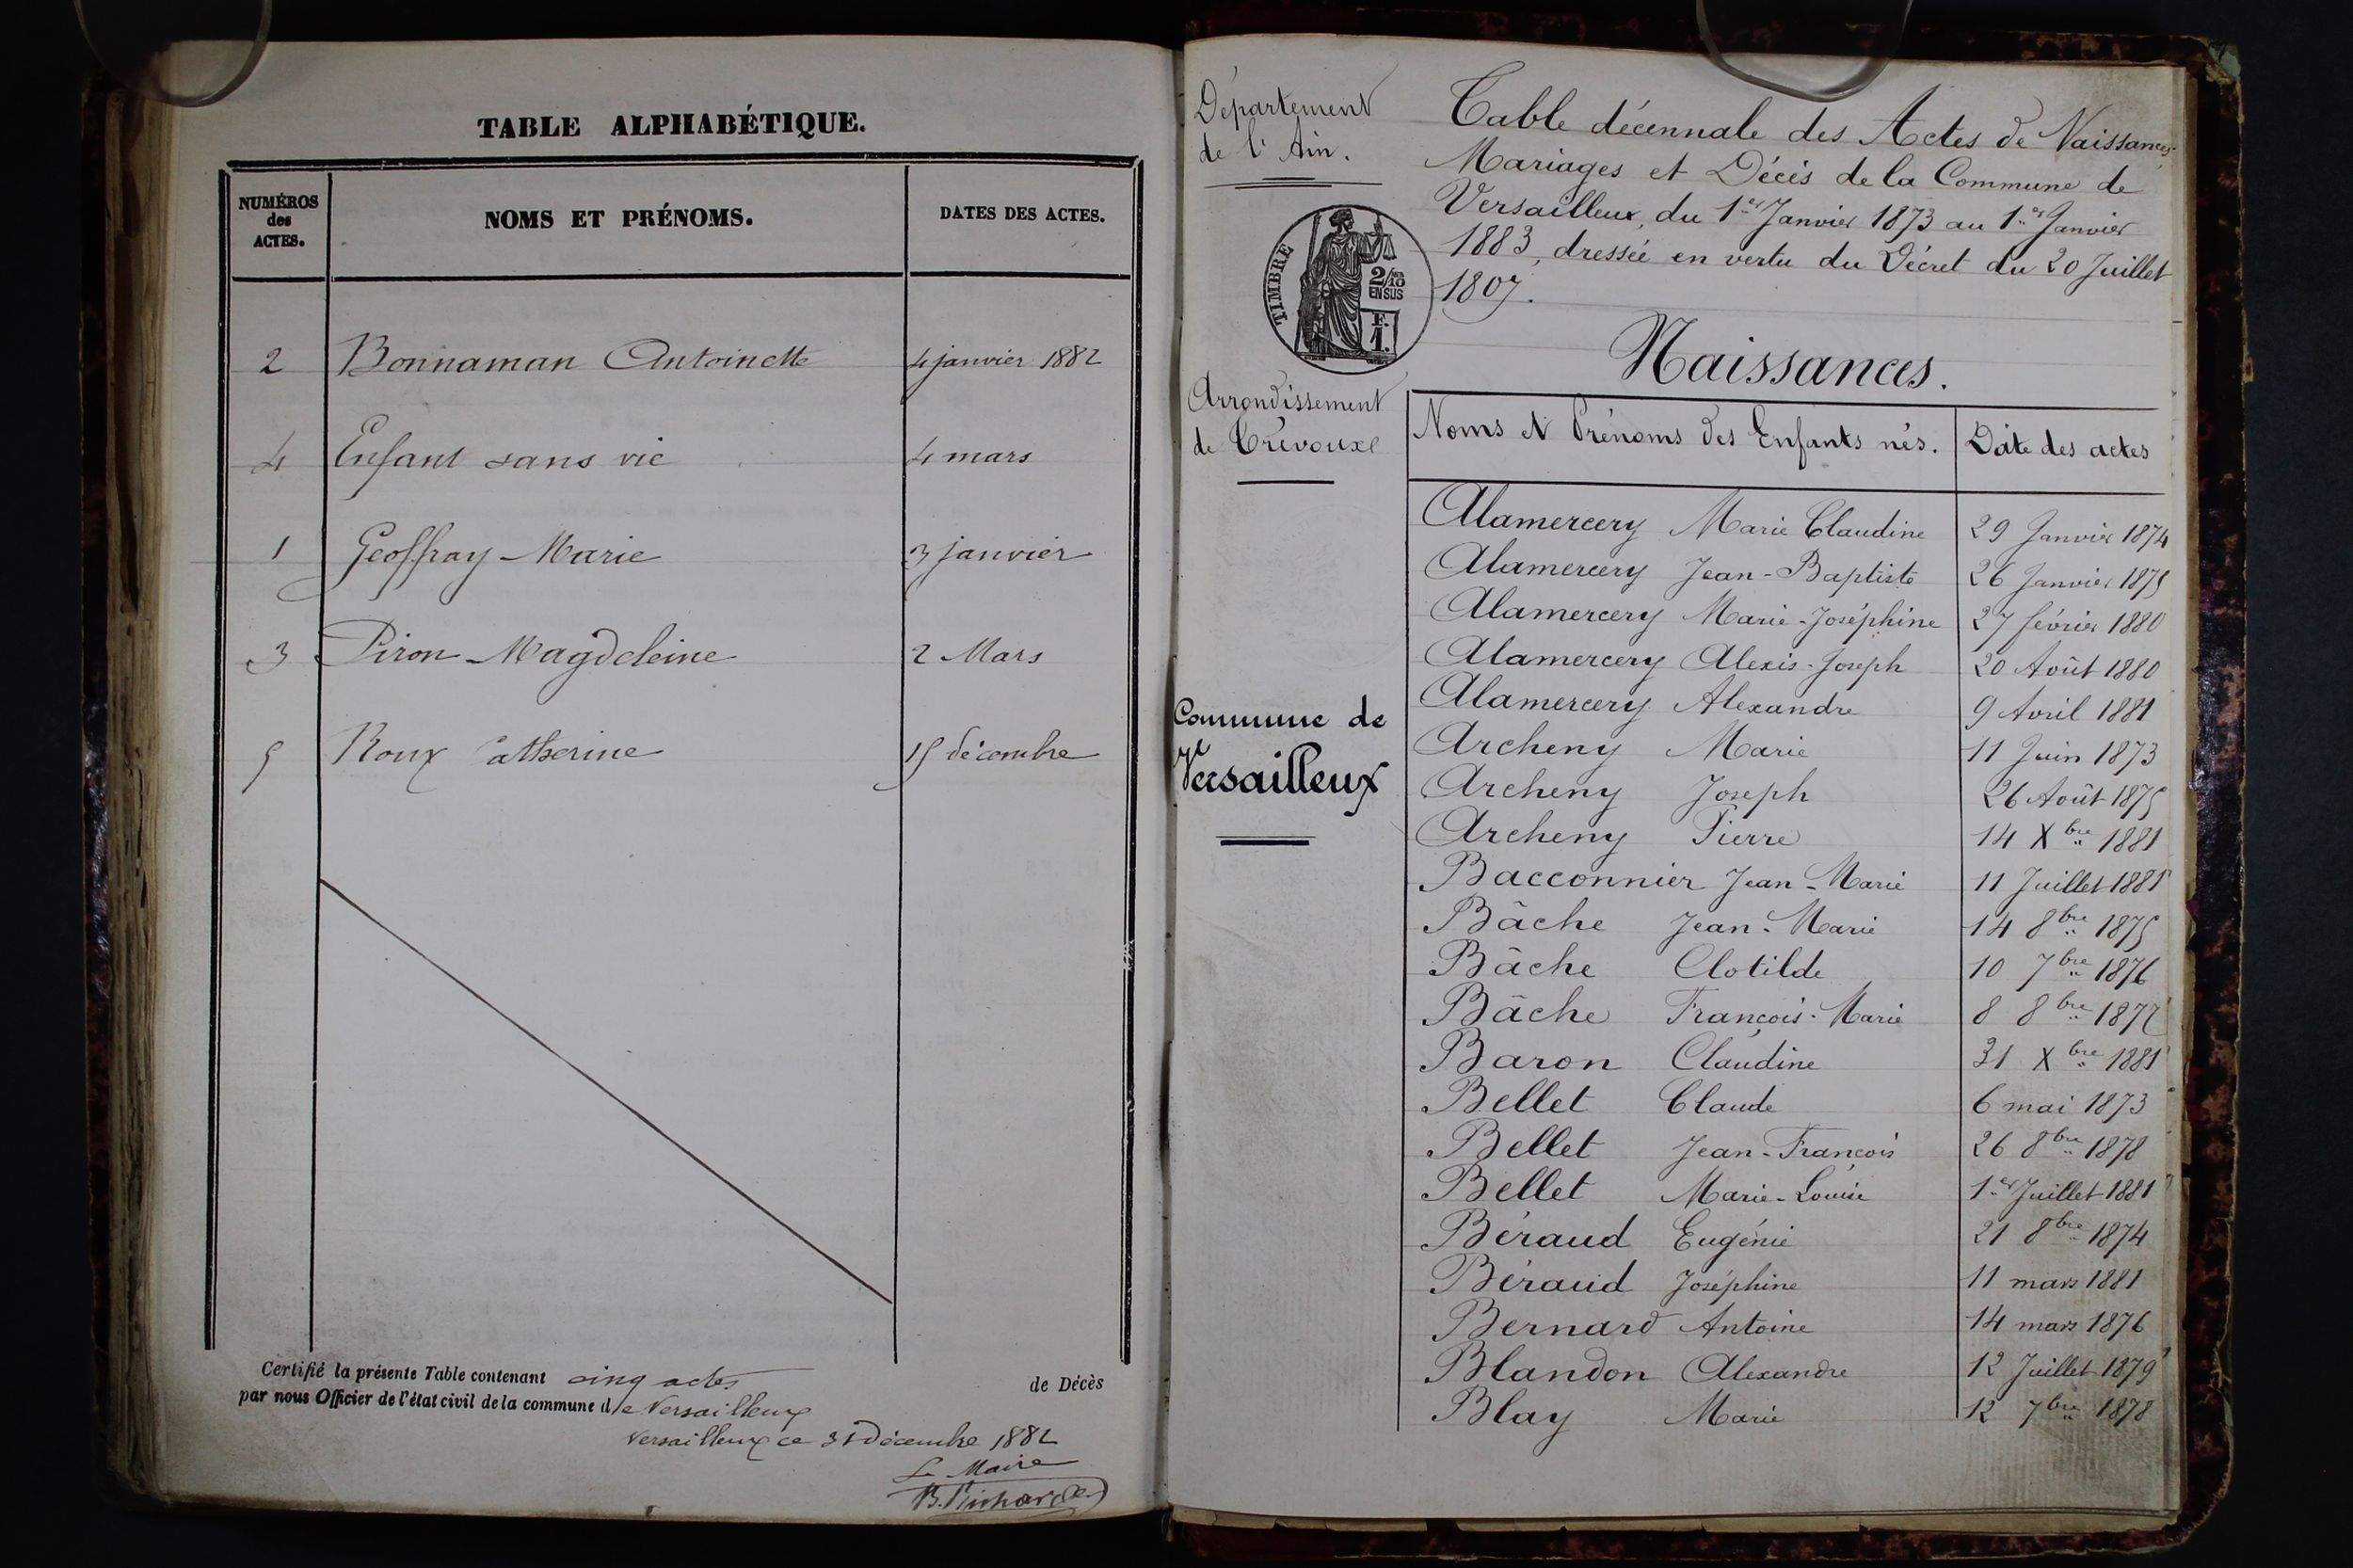 TABLE ALPHABÉTIQUE.
NUMÉROS des ACTES. NOMS ET PRÉNOMS. DATES DES ACTES.
2 Bonnaman Antoinette 4 janvier 1882
4 Enfant sans vie 4 mars
1 Geoffray Marie 3 janvier
3 Piron Magdeleine 2 Mars
5 Roux Catherine 15 décembre
Certifié la présente Table contenant cinq actes de Décès
par nous Officier de l'état civil de la commune de Versailleux
Versailleux ce 31 Décembre 1882
Le Maire
Département
de l'Ain.
TIMBRE
2/10
EN SUS
F.
1.
Arrondissement
de Trévoux
Commune de
Versailleux
Table décennale des Actes de Naissances
Mariages et Décès de la Commune de
Versailleux, du 1er Janvier 1873 au 1er Janvier
1883, dressée en vertu du Décret du 20 Juillet
1807.
Naissances.
Noms et Prénoms des Enfants nés. Date des actes
Alamercery Marie Claudine 29 Janvier 1874
Alamercery Jean-Baptiste 26 Janvier 1875
Alamercery Marie-Joséphine 27 février 1880
Alamercery Alexis-Joseph 20 Août 1880
Alamercery Alexandre 9 Avril 1881
Archeny Marie 11 Juin 1873
Archeny Joseph 26 Août 1875
Archeny Pierre 14 Xbre 1881
Bacconnier Jean-Marie 11 Juillet 1881
Bâche Jean-Marie 14 8bre 1875
Bâche Clotilde 10 7bre 1876
Bâche François-Marie 8 8bre 1877
Baron Claudine 31 Xbre 1881
Bellet Claude 6 mai 1873
Bellet Jean-François 26 8bre 1878
Bellet Marie-Louise 1er Juillet 1881
Béraud Eugénie 21 8bre 1874
Béraud Joséphine 11 mars 1881
Bernard Antoine 14 mars 1876
Blandon Alexandre 12 Juillet 1879
Blay Marie 12 7bre 1878